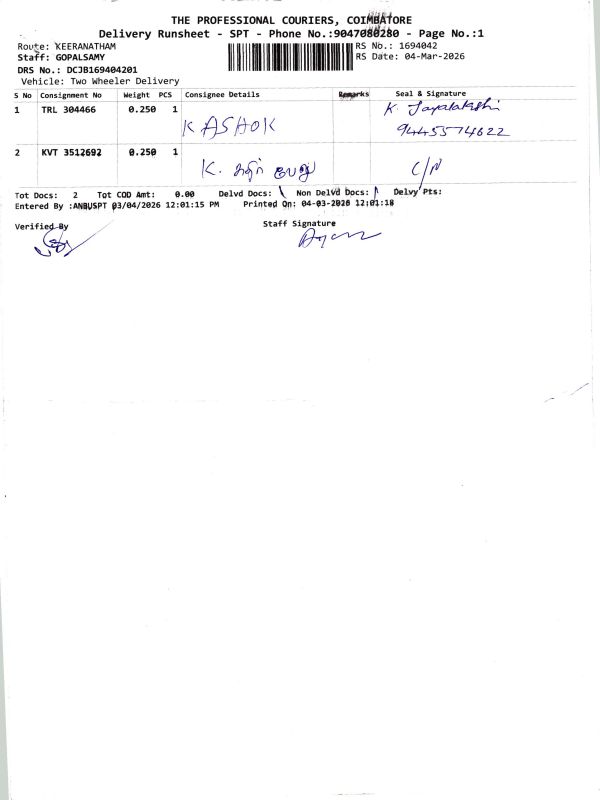 THE PROFESSIONAL COURIERS, COIMBATORE
Delivery Runsheet - SPT - Phone No.:9047080280 - Page No.:1
Route: KEERANATHAM
RS No.: 1694042
Staff: GOPALSAMY
RS Date: 04-Mar-2026
DRS No.: DCJB169404201
Vehicle: Two Wheeler Delivery
S No Consignment No Weight PCS Consignee Details Remarks Seal & Signature
1 TRL 304466 0.250 1 K ASHOK K. Jayalakshi
9445574622
2 KVT 3512692 0.250 1 K. கதிர் வேலு C/N
Tot Docs: 2 Tot COD Amt: 0.00 Delvd Docs: 1 Non Delvd Docs: 1 Delvy Pts:
Entered By :ANBUSPT 03/04/2026 12:01:15 PM Printed On: 04-03-2026 12:01:18
Verified By
Staff Signature